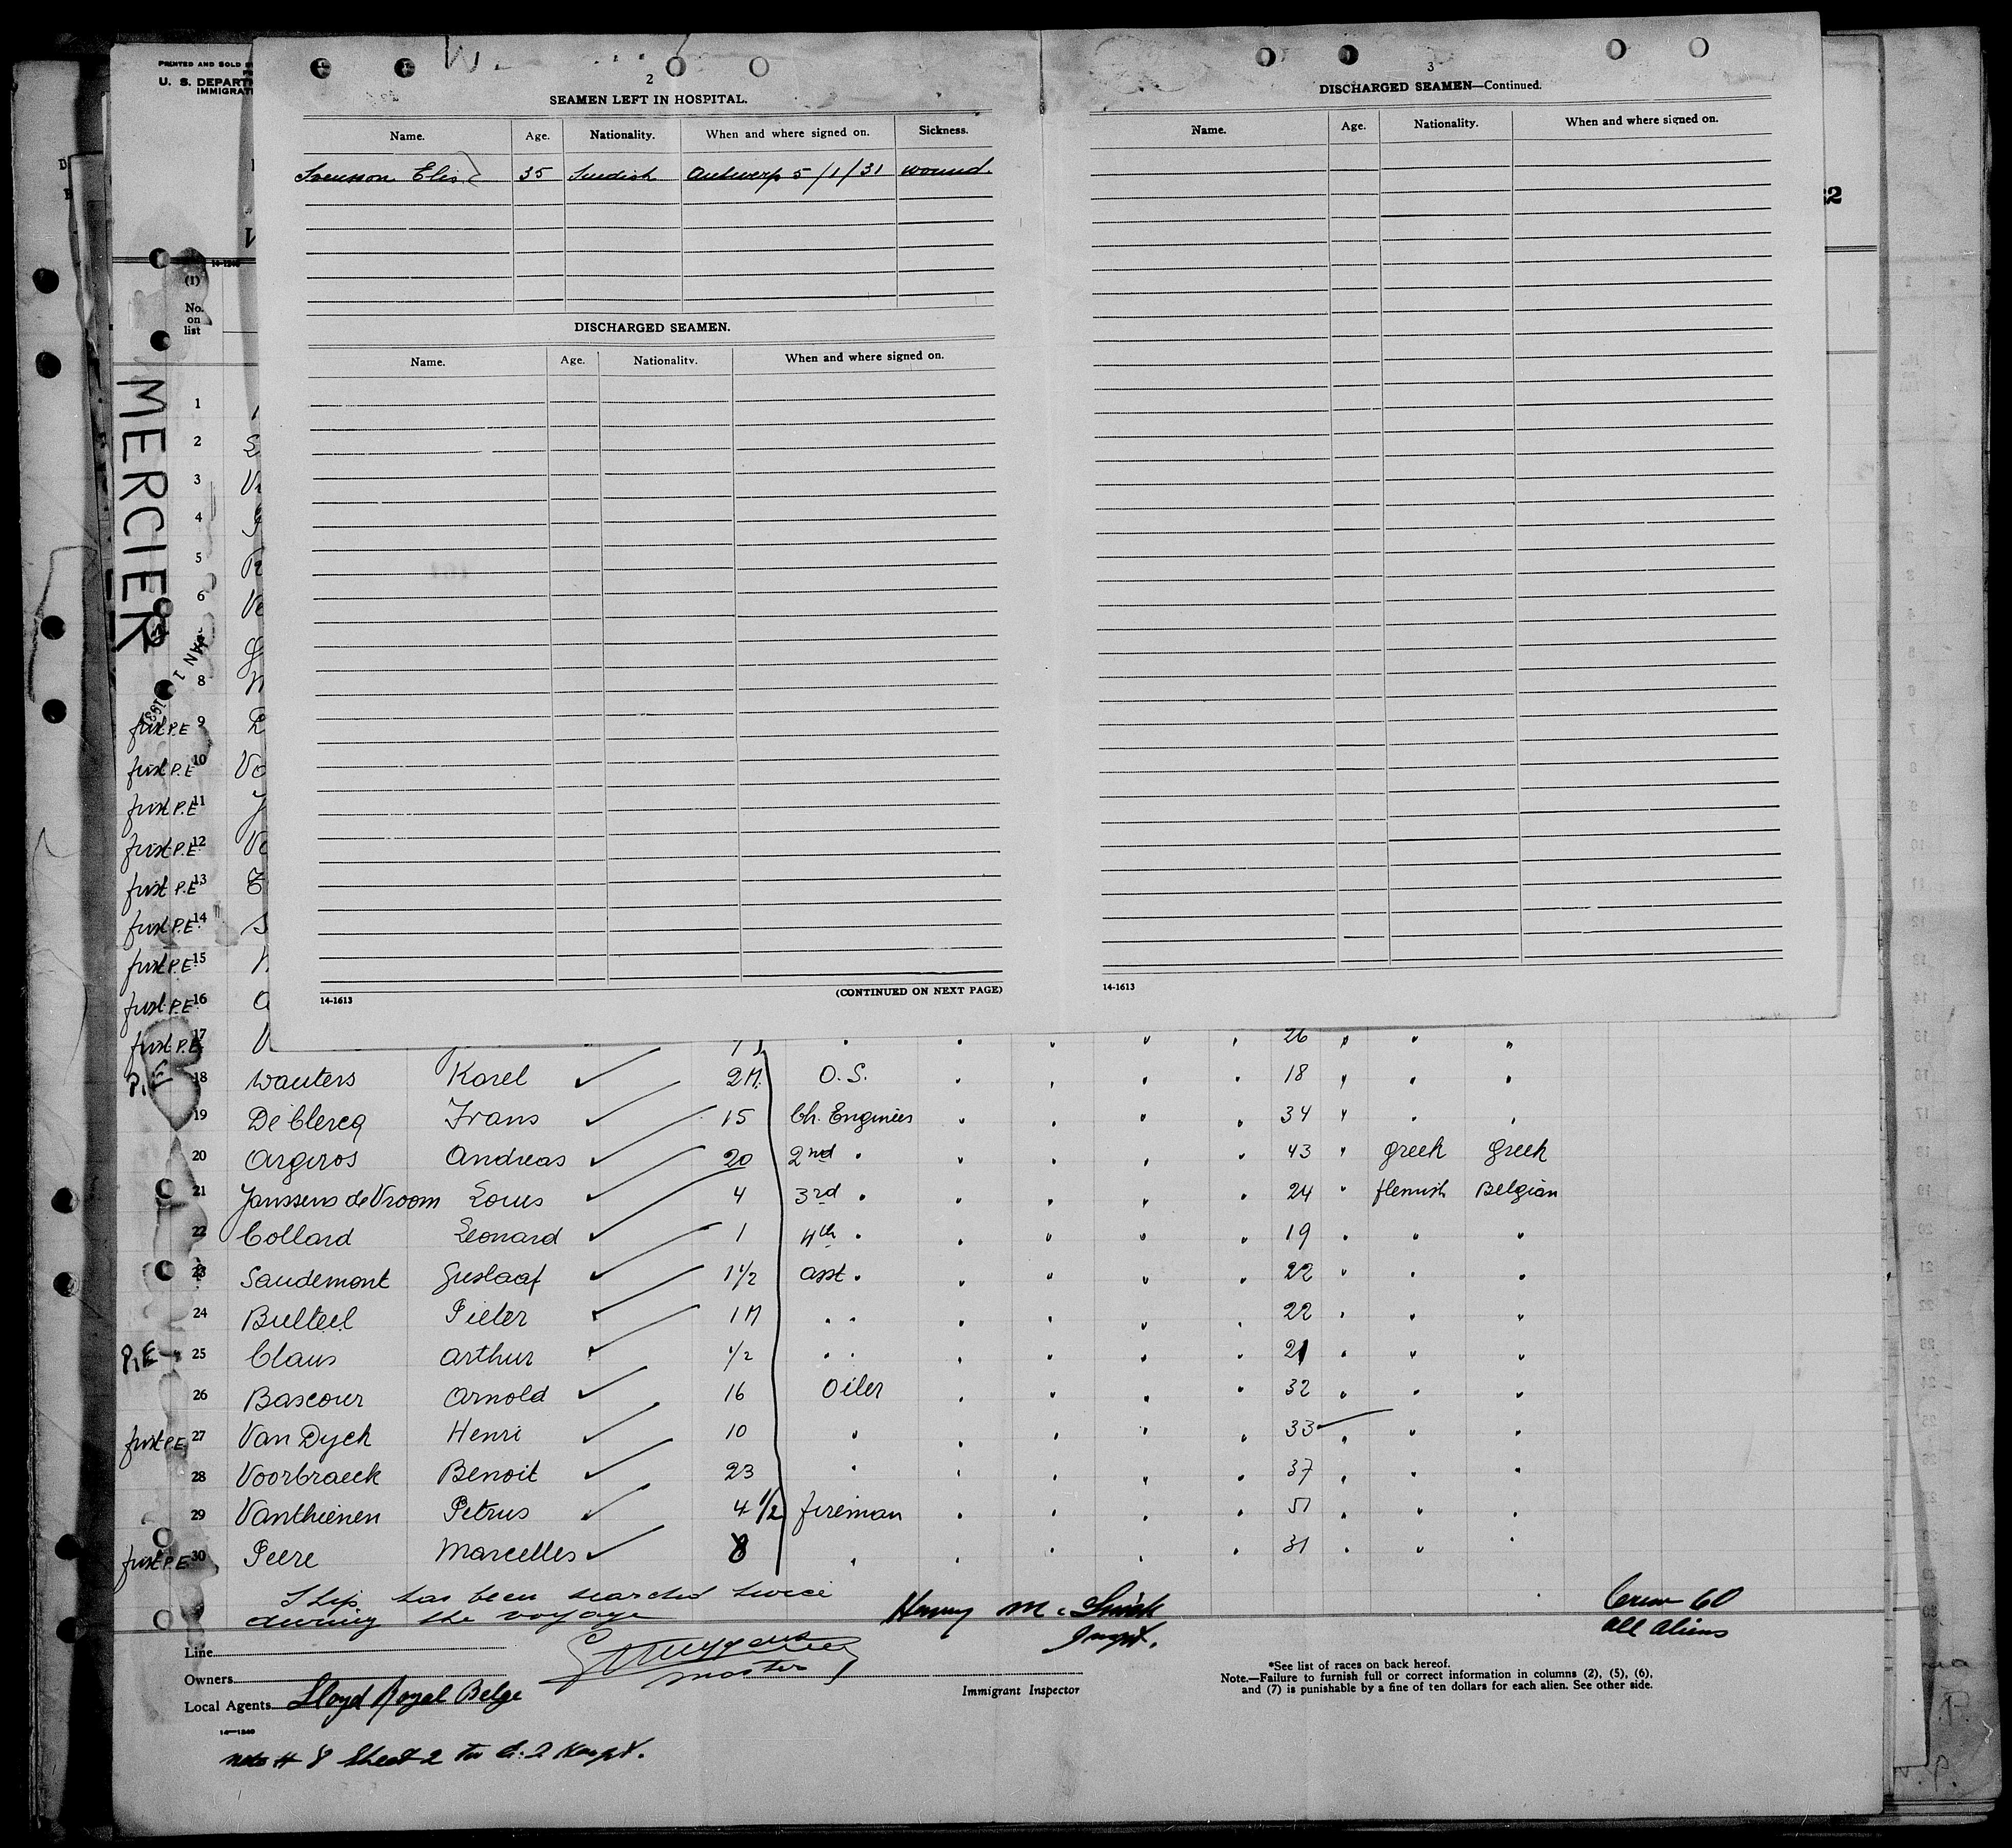 PRINTED AND SOLD
U. S. DEPART
IMMIGRAT
2
SEAMEN LEFT IN HOSPITAL.
Name. Age. Nationality. When and where signed on. Sickness.
Svensson Elis 35 Swedish Antwerp 5/1/31 wound.
DISCHARGED SEAMEN.
Name. Age. Nationality. When and where signed on.
14-1613 (CONTINUED ON NEXT PAGE)
3
DISCHARGED SEAMEN—Continued.
Name. Age. Nationality. When and where signed on.
14-1613
22
14-1240
(1)
No.
on
list
MERCIER
JAN 1
1
2
3
4
5
6
8
first P.E 9
first P.E 10 Va
first P.E 11
first P.E 12
first P.E 13
first P.E 14
first P.E 15
first P.E 16
first P.E 17 26 " " "
P.E 18 Wauters Karel ✓ 2M. O.S. " " " " 18 " " "
19 De Clercq Frans ✓ 15 Ch. Engineer " " " " 34 " " "
20 Argiros Andreas ✓ 20 2nd " " " " " 43 " greek greek
21 Janssens de Vroom Louis ✓ 4 3rd " " " " " 24 " flemish Belgian
22 Collard Leonard ✓ 1 4th " " " " " 19 " " "
23 Saudemont Gustaaf ✓ 1 1/2 asst. " " " " 22 " " "
24 Bulteel Pieter ✓ 1M " " " " " " 22 " " "
P.E 25 Claus Arthur ✓ 1/2 " " " " " " 21 " " "
26 Bascour Arnold ✓ 16 Oiler " " " " 32 " " "
first P.E 27 Van Dyck Henri ✓ 10 " " " " " 33 " " "
28 Voorbraeck Benoit ✓ 23 " " " " " 37 " " "
29 Vanthienen Petrus ✓ 4 1/2 fireman " " " " 51 " " "
first P.E 30 Peere Marcelles ✓ 8 " " " " " 31 " " "
Ship has been searched twice
during the voyage
Henry M. Smith
Inspt.
Crew 60
all aliens
Line
master
Owners
Local Agents Lloyd Royal Belge
Immigrant Inspector
*See list of races on back hereof.
Note.—Failure to furnish full or correct information in columns (2), (5), (6),
and (7) is punishable by a fine of ten dollars for each alien. See other side.
14—1240
note # 8 Sheet 2